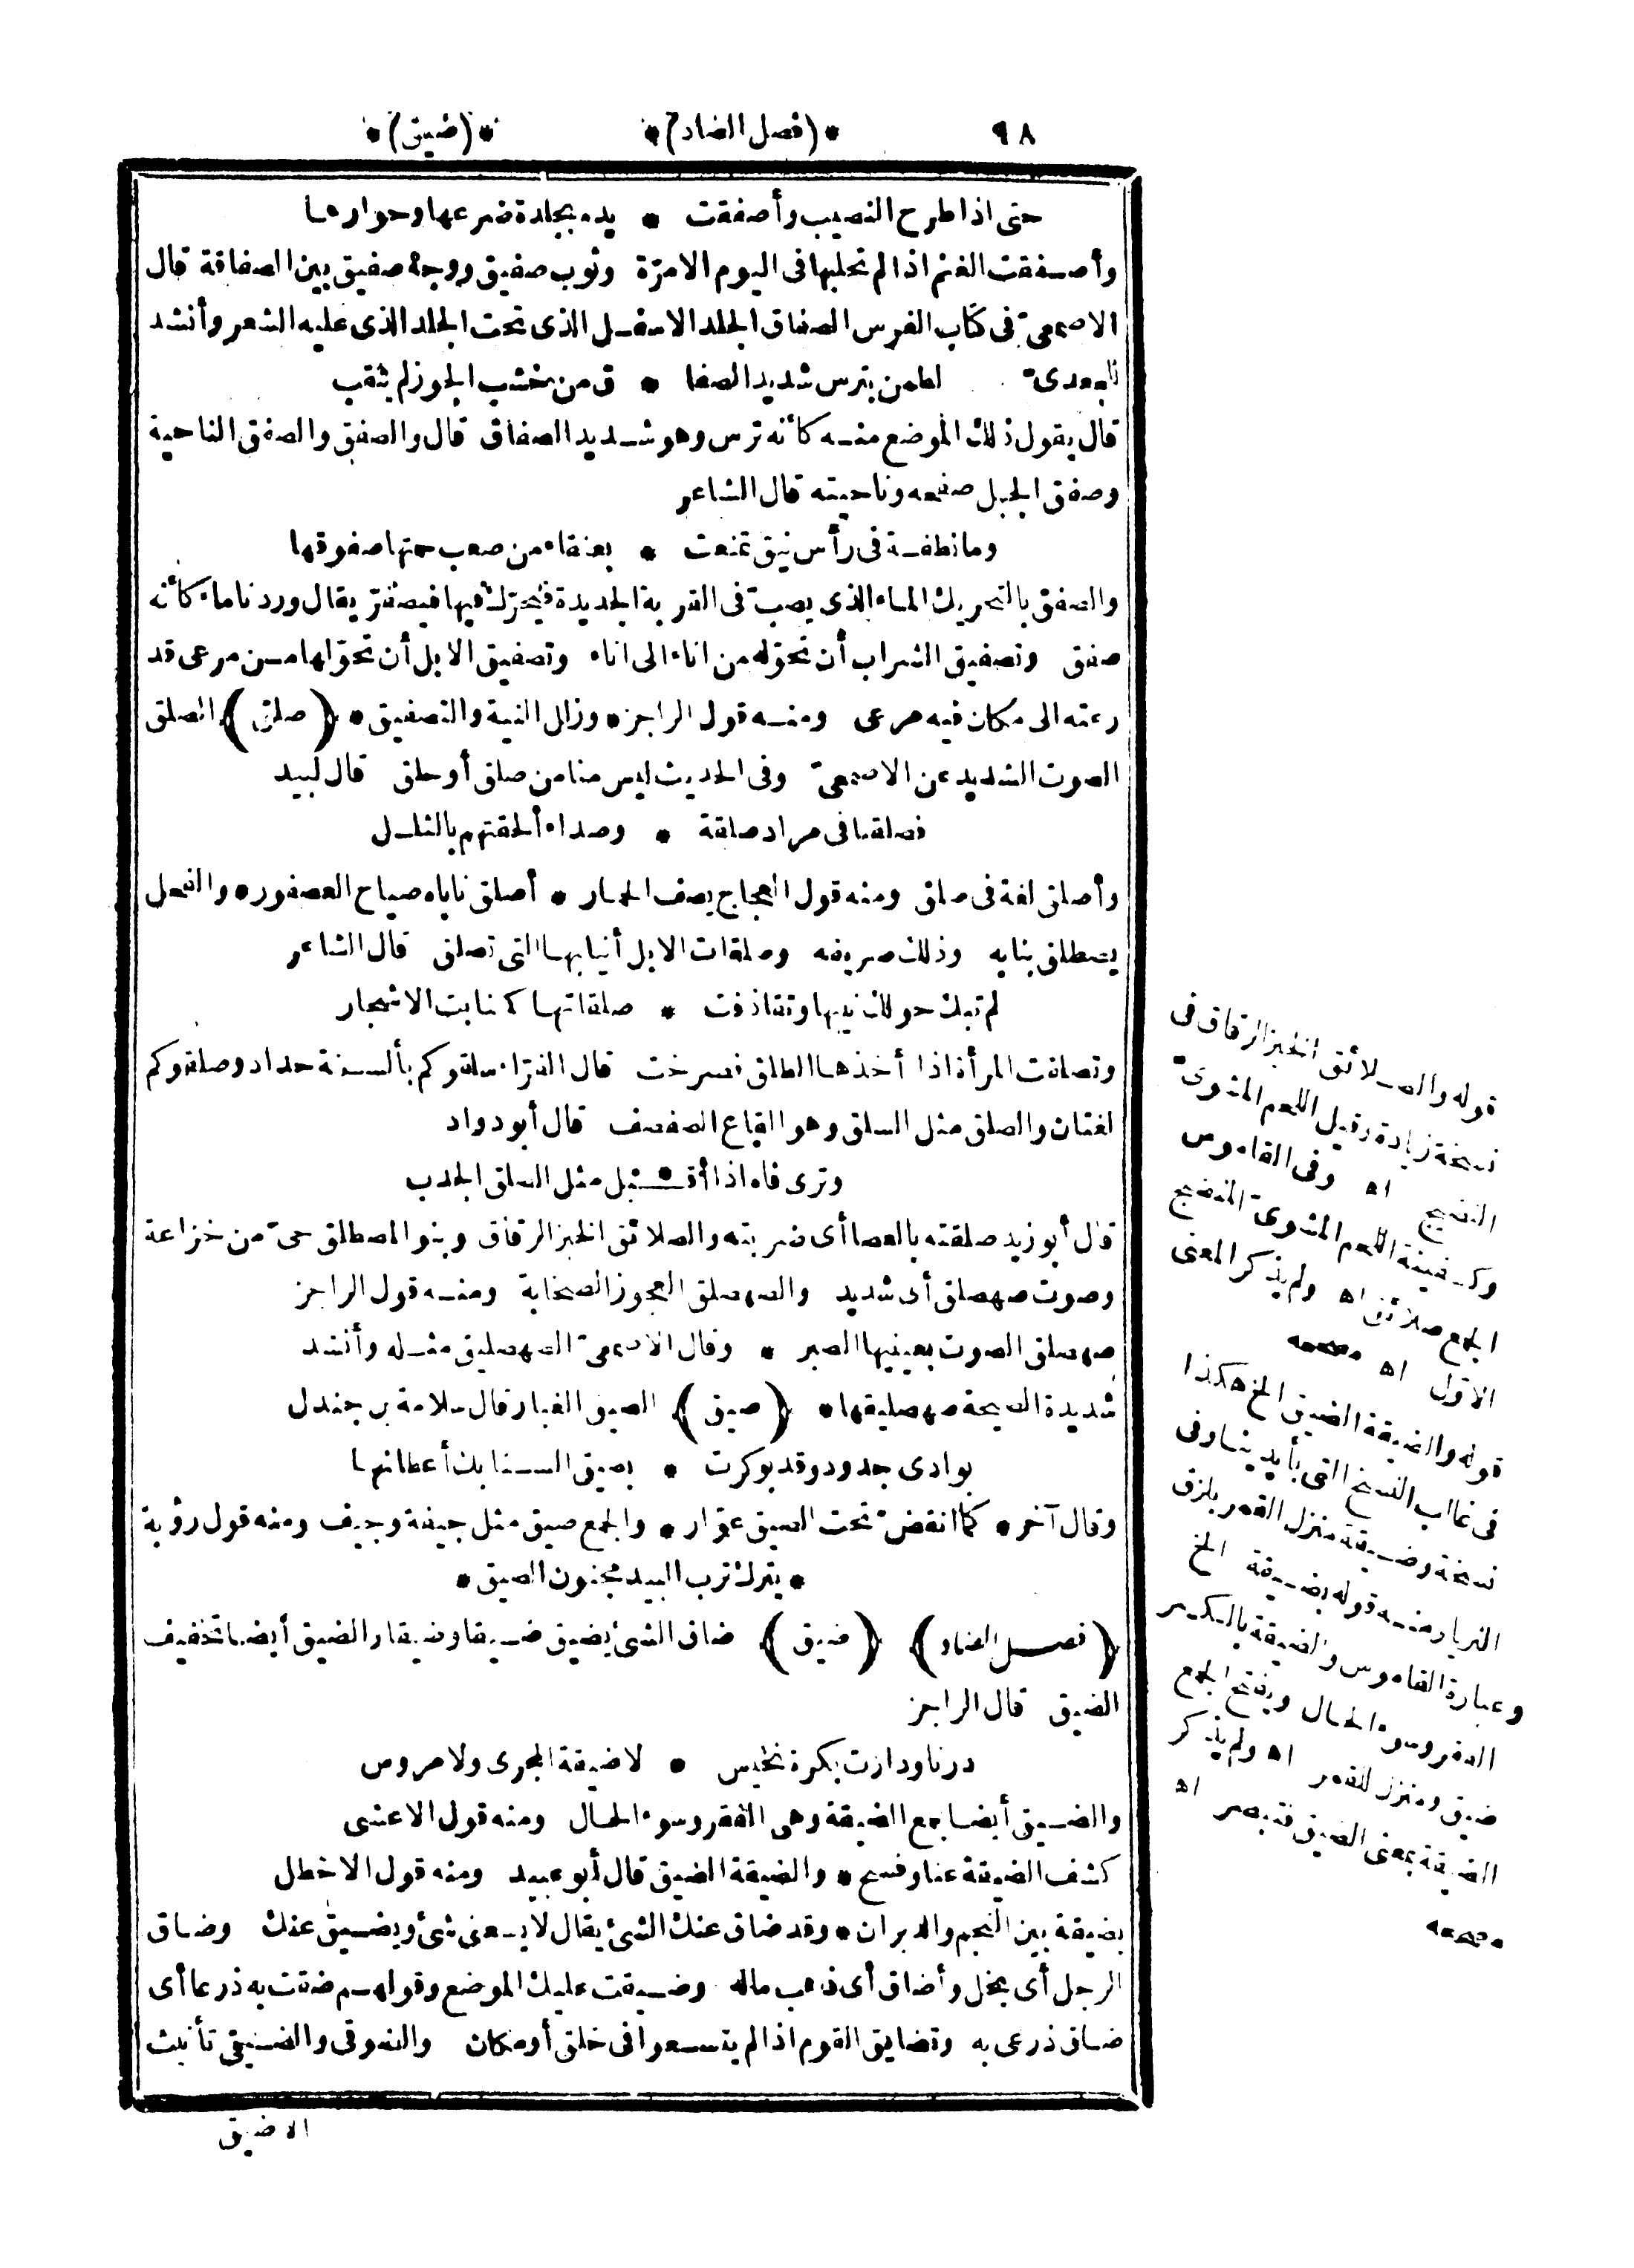 ٩٨
*(فصل الضاد)*
*(ضيق)*
حتى اذا طرح النصيب وأصفقت * يده بجلدة ضرعها وحوارها
وأصفقت الغنم اذا لم تحلبها فى اليوم الا مرّة وثوب صفيق ووجه صفيق بين الصفاقة قال
الاصمعىّ فى كتاب الفرس الصفاق الجلد الاسفل الذى تحت الجلد الذى عليه الشعر وأنشد
للجعدىّ لطمن بترس شديد الصفا * ق من خشب الجوز لم يثقب
قال يقول ذلك الموضع منه كأنه ترس وهو شديد الصفاق قال والصفق والصفق الناحية
وصفق الجبل صفحه وناحيته قال الشاعر
وما نطفة فى رأس نيق تمنعت * بعنقاء من صعب حمتها صفوقها
والصفق بالتحريك الماء الذى يصبّ فى القربة الجديدة فيحرّك فيها فيصفرّ يقال وردنا ماء كأنه
صفق وتصفيق الشراب أن تحوّله من اناء الى اناء وتصفيق الابل أن تحوّلها من مرعى قد
رعته الى مكان فيه مرعى ومنه قول الراجز * وزلل النية والتصفيق * (صلق) الصلق
الصوت الشديد عن الاصمعىّ وفى الحديث ليس منا من صلق أو حلق قال لبيد
فصلقنا فى مراد صلقة * وصداء ألحقتهم بالثلل
وأصلق لغة فى صلق ومنه قول العجاج يصف الحمار * أصلق ناباه صياح العصفور * والفحل
يصطلق بنابه وذلك صريفه وصلقات الابل أنيابها التى تصلق قال الشاعر
لم تبك حولك نيبها وتقاذفت * صلقاتها كمنابت الاشجار
وتصلقت المرأة اذا أخذها الطلق فصرخت قال الفرّاء سلقوكم بألسنة حداد وصلقوكم
لغتان والصلق مثل السلق وهو القاع الصفصف قال أبو دواد
وترى فاه اذا أقـ * ـبل مثل السلق الجدب
قال أبو زيد صلقته بالعصا أى ضربته والصلائق الخبز الرقاق وبنو المصطلق حىّ من خزاعة
وصوت صهصلق أى شديد والصهصلق العجوز الصخابة ومنه قول الراجز
صهصلق الصوت بعينيها الصبر * وقال الاصمعىّ الصهصليق مثله وأنشد
شديدة الصيحة صهصليقها * (صيق) الصيق الغبار قال سلامة بن جندل
بوادى جدود وقد بوكرت * بصيق السنابك أعطانها
وقال آخر * كما انقضّ تحت الصيق عوّار * والجمع صيق مثل جيفة وجيف ومنه قول رؤبة
* يتركن ترب البيد مجنون الصيق *
(فصل الضاد) (ضيق) ضاق الشئ يضيق ضيقا وضيقا والضيق أيضا تخفيف
الضيق قال الراجز
درنا ودارت بكرة نخيس * لا ضيقة المجرى ولا مروس
والضيق أيضا جمع الضيقة وهى الفقر وسوء الحال ومنه قول الاعشى
كشف الضيقة عنا وفسح * والضيقة الضيق قال أبو عبيد ومنه قول الاخطل
بضيقة بين النجم والدبران * وقد ضاق عنك الشئ يقال لا يسعنى شئ ويضيق عنك وضاق
الرجل أى بخل وأضاق أى ذهب ماله وضيقت عليك الموضع وقولهم ضقت به ذرعا أى
ضاق ذرعى به وتضايق القوم اذا لم يتسعوا فى خلق أو مكان والضوقى والضيقى تأنيث
الاضيق
قوله والصلائق الخبز الرقاق فى
نسخة زيادة وقيل اللحم المشوىّ
النضيج اه وفى القاموس
وكسفينة اللحم المشوىّ المنضج
الجمع صلائق اه ولم يذكر المعنى
الاوّل اه مصححه
قوله والضيقة الضيق الخ هكذا
فى غالب النسخ التى بأيدينا وفى
نسخة وضيقة منزل القمر بلزق
الثريا ومنه قوله بضيقة الخ
وعبارة القاموس والضيقة بالكسر
الفقر وسوء الحال ويفتح الجمع
ضيق ومنزل للقمر اه ولم يذكر
الضيقة بمعنى الضيق فتبصر اه
مصححه